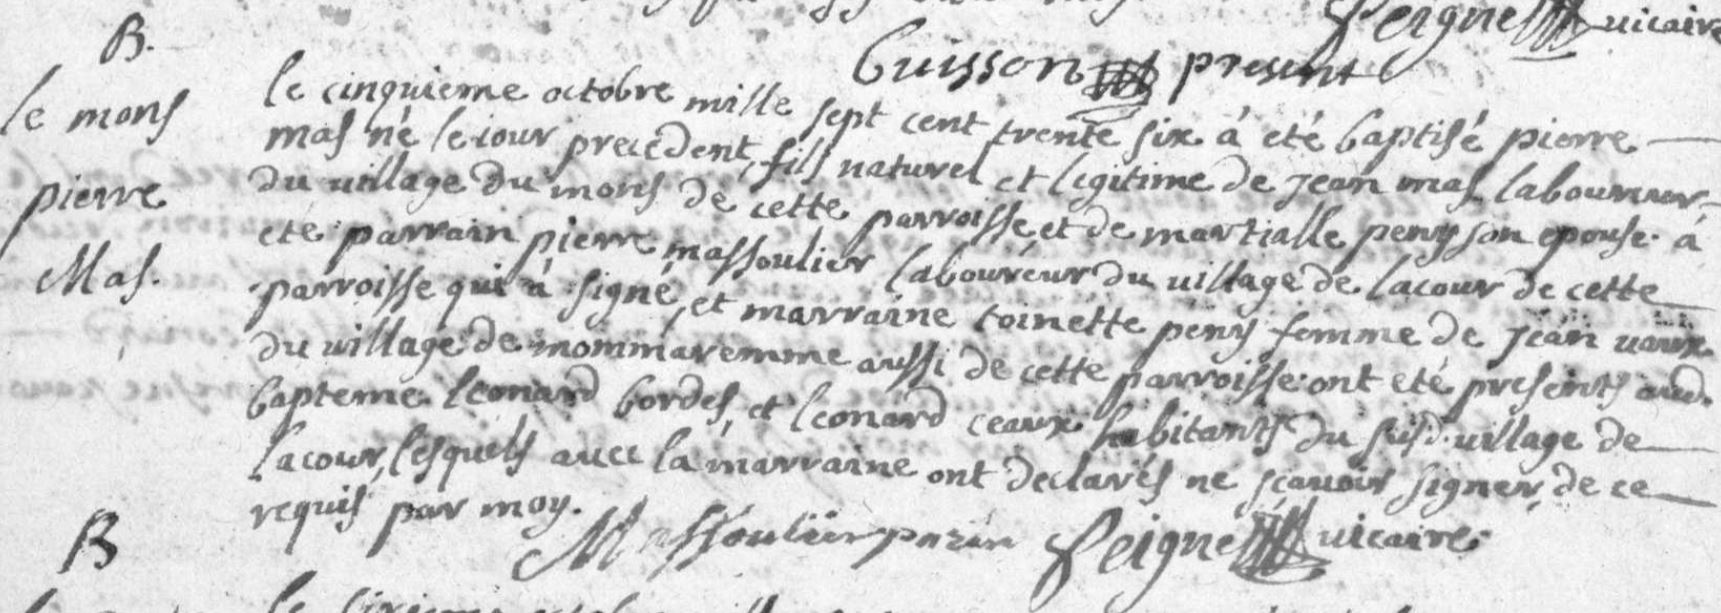 Peigne vicaire
Buisson present
B.
le mons
pierre
Mas.
le cinquieme octobre mille sept cent trente six à eté baptisé pierre
mas né le iour precedent, fils naturel et legitime de jean mas laboureur
du village du mons de cette parroisse et de martialle peny son epouse. à
eté parrain pierre massoulier laboureur du village de lacour de cette
parroisse qui à signé, et marraine toinette peny femme de jean vaux
du village de mommaremme aussi de cette parroisse. ont eté presents aud.
bapteme leonard bordes, et leonard ceaux habitants du susd. village de
lacour, lesquels avec la marraine ont declarés ne sçavoir signer, de ce
requis par moy.
Massoulier parin Peigne vicaire.
B
le sixieme octobre